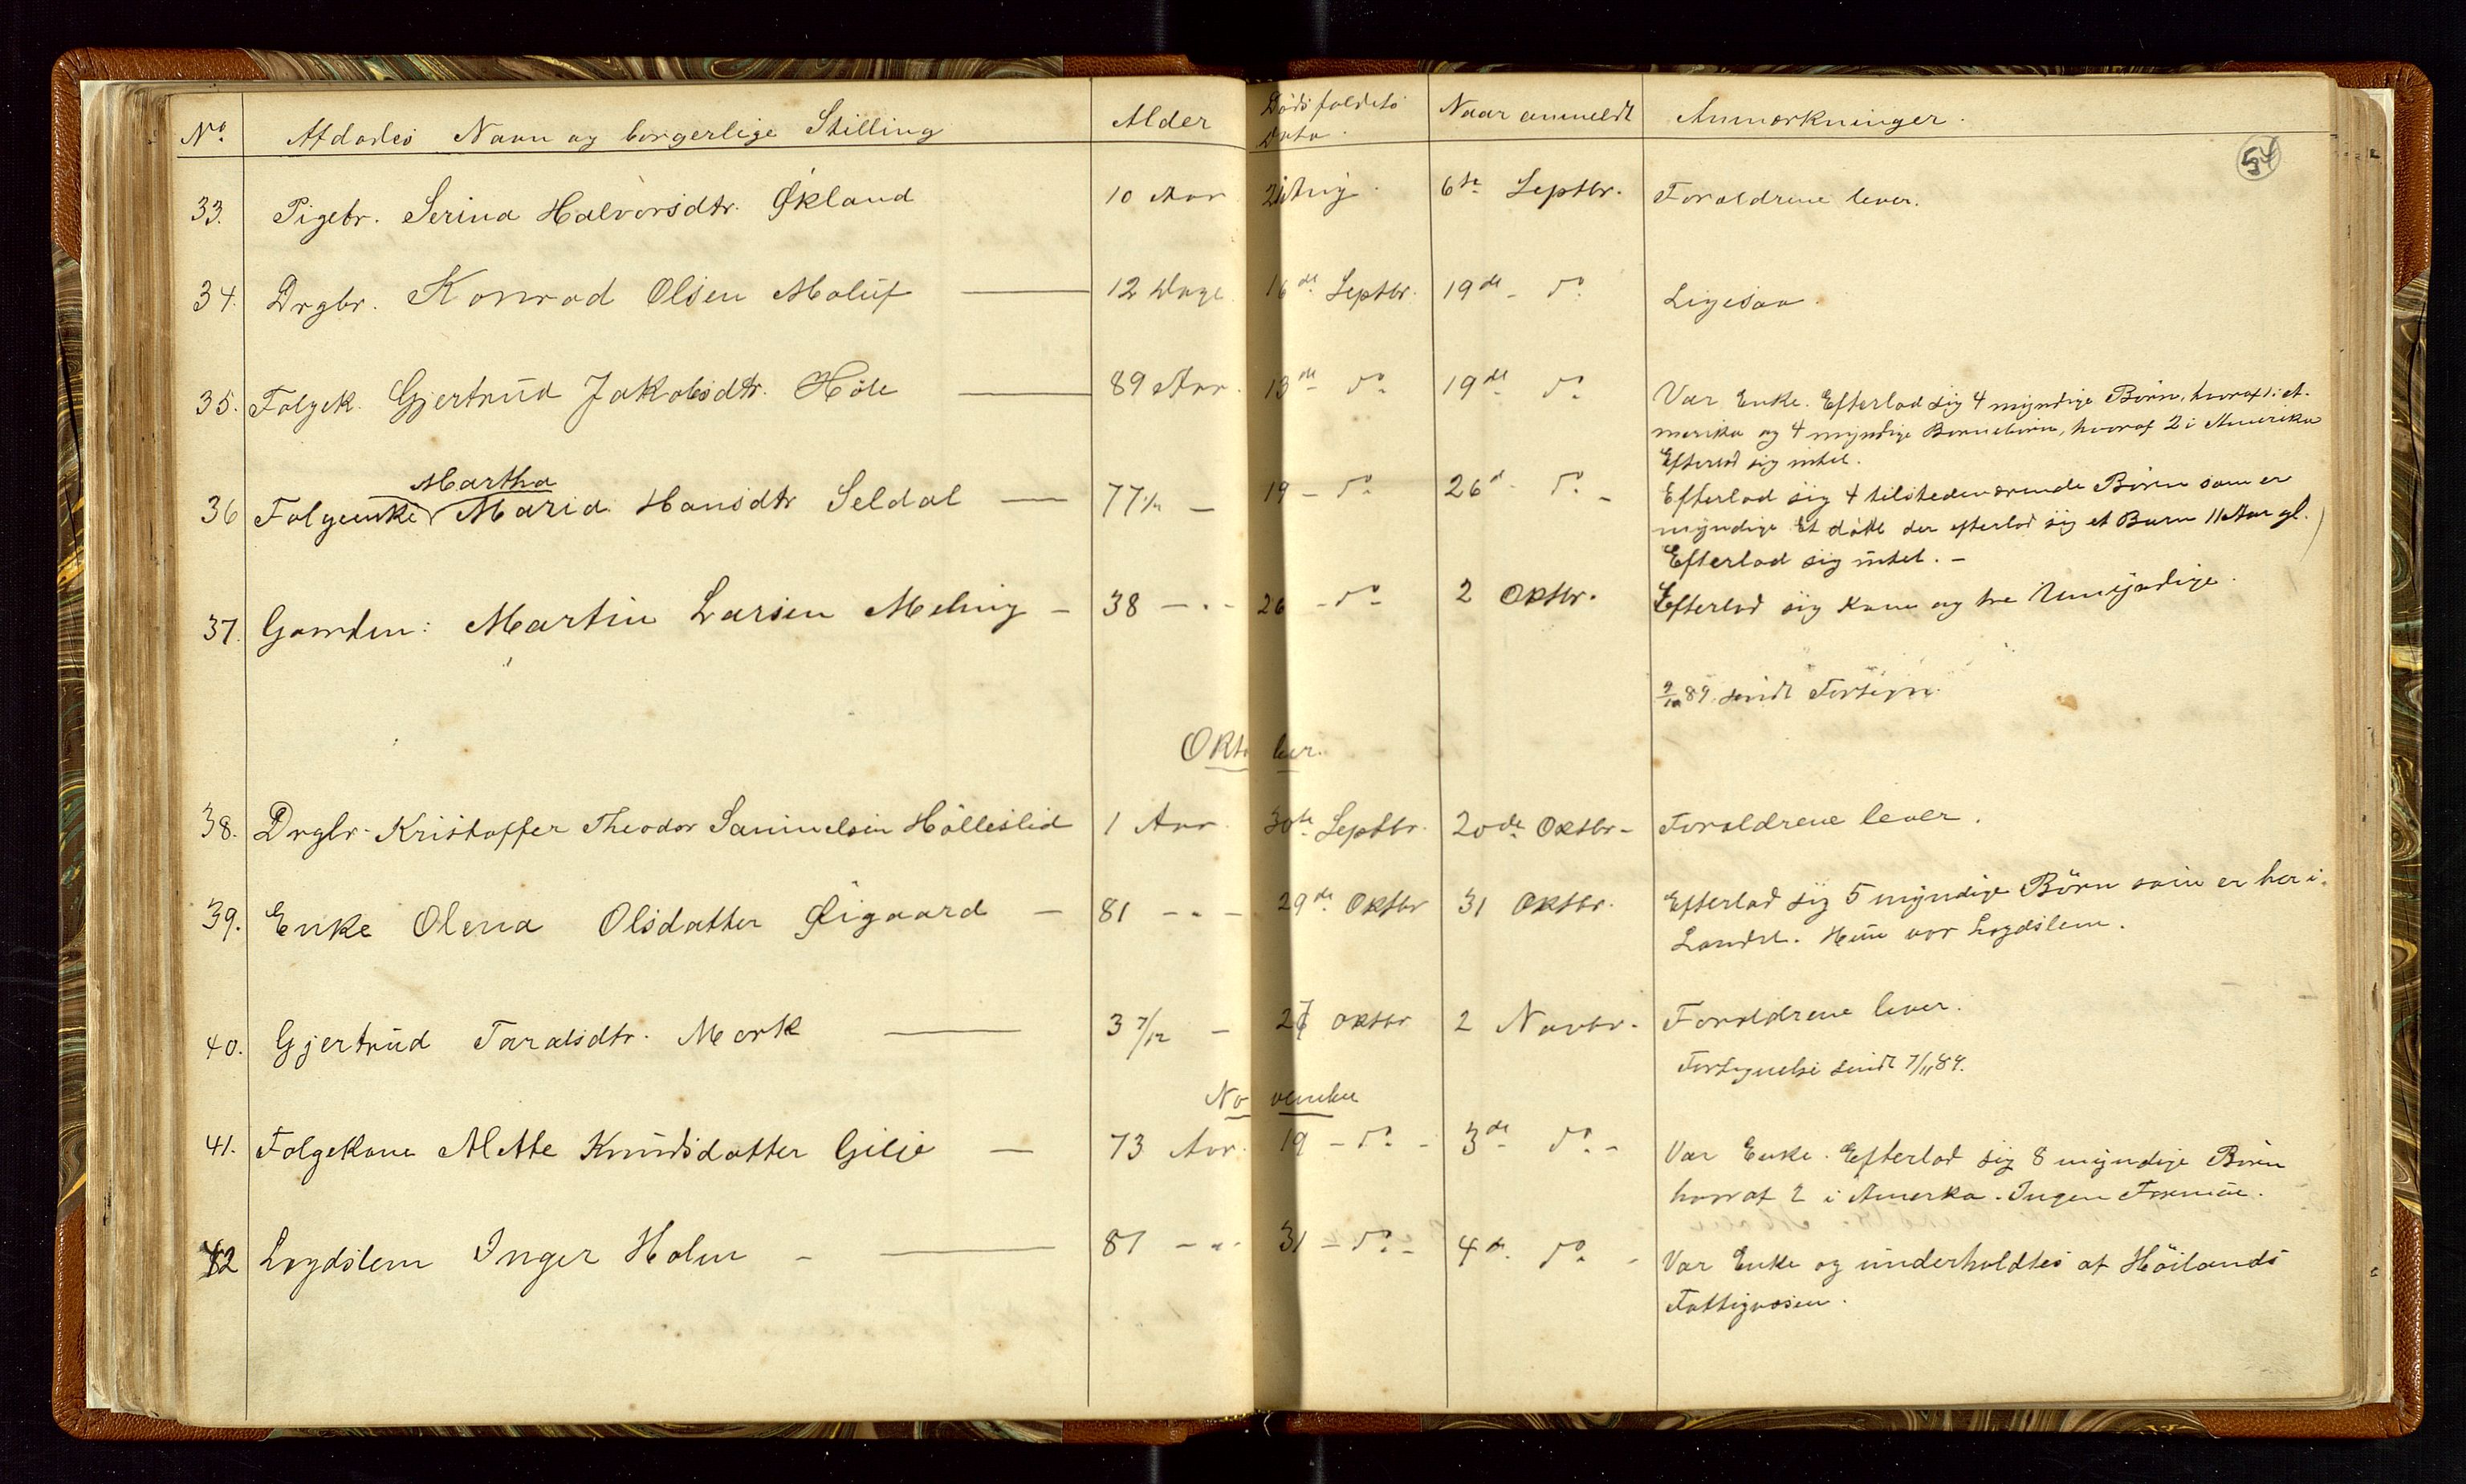 No. Afdødes Navn og borgerlige Stilling Alder Dødsfaldets Naar anmeldt Anmærkninger.
Dato.
54
33. Pigebr. Serina Halvorsdtr. Økland 10 Aar 21 Aug. 6te Septbr. Forældrene lever.
34. Drgbr. Konrad Olsen Maluf — 12 Dage 16de Septbr. 19de - do Ligesaa.
35. Folgek. Gjertrud Jakobsdtr. Høle — 89 Aar. 13de do 19de do Var Enke. Efterlod sig 4 myndige Børn, hvoraf 1 i A-
merika og 4 myndige Børnebørn, hvoraf 2 i Amerika
Efterlod sig intet.
Martha
36 Folgeenke Maria Hansdtr Seldal — 77 — 19 - do 26d - do - Efterlod sig 4 tilstedeværende Børn som er
myndige Et dødt der efterlod sig et Barn 11 Aar gl.
Efterlod sig intet. -
37. Gaardm: Martin Larsen Meling - 38 - " - 26 - do - 2 Oktbr. Efterlod sig Kone og tre Umyndige.
9/10 89. sendt Fortegn.
Oktober.
38. Drgbr. Kristoffer Theodor Samuelsen Hølleslid 1 Aar. 30te Septbr. 20de Oktbr - Forældrene lever.
39. Enke Olena Olsdatter Øigaard - 81 - " - 29de Oktbr 31 Oktbr. Efterlod sig 5 myndige Børn som er her i
Landet. Hun var Lægdslem.
40. Gjertrud Taralsdtr. Mork — 3 7/12 - 27 Oktbr 2 Novbr. Forældrene lever.
Fortegnelse sendt 7/11 89.
November
41. Folgekone Mette Knudsdatter Gilje — 73 Aar. 19 - do - 3de do - Var Enke. Efterlod sig 8 myndige Børn
hvoraf 2 i Amerka. Ingen Formue.
42 Lægdslem Inger Holm - — 87 - " - 31 - do - 4de do - Var Enke og underholdtes af Høilands
Fattigvæsen.